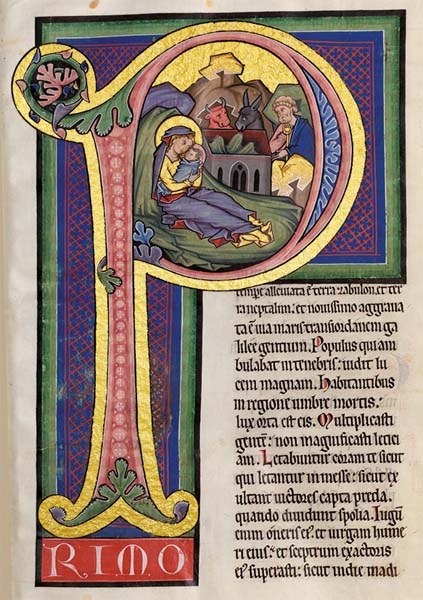 P
RIMO
tempe alleuiata ē terra zabulon. et ter
ra neptalim: et nouissimo aggraua
ta ē uia maris transiordanem ga
lilee gentium. Populus qui am
bulabat in tenebris: uidit lu
cem magnam. Habitantibus
in regione umbre mortis:
lux orta est eis. Multiplicasti
gentē: non magnificasti letici
am. Letabuntur coram te sicut
qui letantur in messe: sicut ex
ultant uictores capta preda.
quando diuidunt spolia. Iugū
enim oneris eꝰ. et uirgam hume
ri eius: et sceptrum exactoris
eꝰ superasti: sicut in die madi